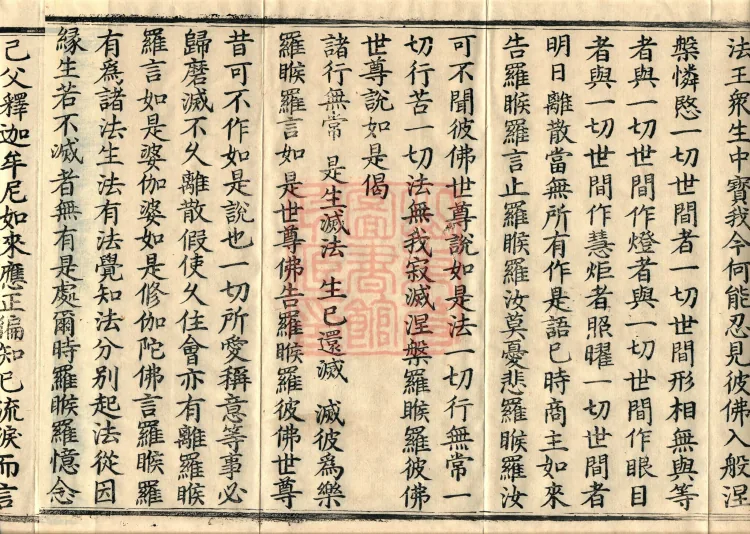 法王衆生中寳我今何能忍見彼佛入般涅
槃憐愍一切世間者一切世間形相無與等
者與一切世間作燈者與一切世間作眼目
者與一切世間作慧炬者照曜一切世間者
明日離散當無所有作是語已時商主如來
告羅睺羅言止羅睺羅汝莫憂悲羅睺羅汝
可不聞彼佛世尊說如是法一切行無常一
切行苦一切法無我寂滅涅槃羅睺羅彼佛
世尊說如是偈
諸行無常 是生滅法 生已還滅 滅彼爲樂
羅睺羅言如是世尊佛告羅睺羅彼佛世尊
昔可不作如是說也一切所愛稱意等事必
歸磨滅不久離散假使久住會亦有離羅睺
羅言如是婆伽婆如是修伽陀佛言羅睺羅
有爲諸法生法有法覺知法分別起法從因
緣生若不滅者無有是處爾時羅睺羅憶念
己父釋迦牟尼如來應正徧知已流淚而言